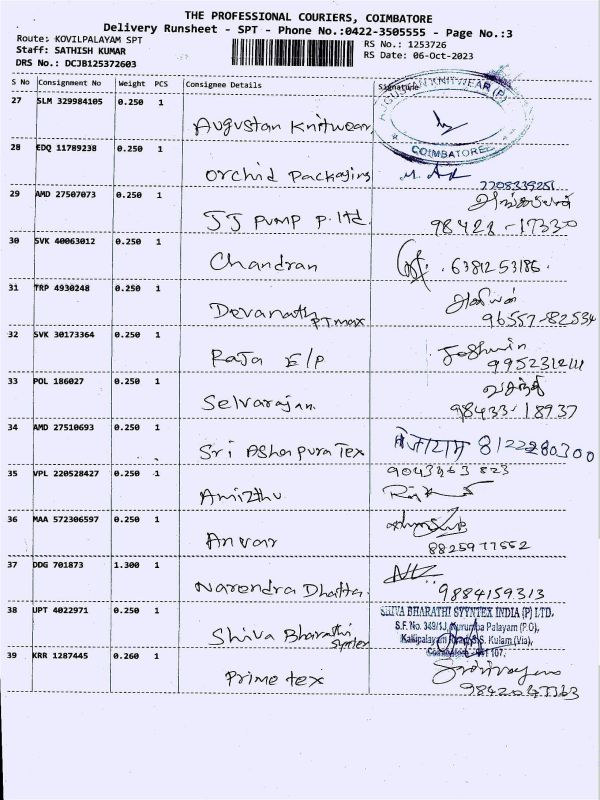 THE PROFESSIONAL COURIERS, COIMBATORE
Delivery Runsheet - SPT - Phone No.:0422-3505555 - Page No.:3
Route: KOVILPALAYAM SPT
RS No.: 1253726
Staff: SATHISH KUMAR
RS Date: 06-Oct-2023
DRS No.: DCJB125372603
S No Consignment No Weight PCS Consignee Details Signature
27 SLM 329984105 0.250 1 Augustan Knitwear AUGUSTAN KNITWEAR (P) COIMBATORE
28 EDQ 11789238 0.250 1 Orchid Packaging 7708339251
29 AMD 27507073 0.250 1 JJ PUMP P. ltd. 98428-17330
30 SVK 40063012 0.250 1 Chandran 6381253186.
31 TRP 4930248 0.250 1 Devanath PT max 96557-82534
32 SVK 30173364 0.250 1 Raja E/P
33 POL 186027 0.250 1 Selvarajan. வசந்தி 98433-18937
34 AMD 27510693 0.250 1 Sri Ashapura Tex 8122280300
35 VPL 220528427 0.250 1 Amizthu 9043463823
36 MAA 572306597 0.250 1 Anvar 8825977552
37 DDG 701873 1.300 1 Narendra Dhatta. 9884159313
38 UPT 4022971 0.250 1 Shiva Bharathi Syntex
SHIVA BHARATHI SYYNTEX INDIA (P) LTD.
S.F. No. 349/1J, Kurumba Palayam (P.O),
Kalipalayam Road, S.S. Kulam (Via),
Coimbatore - 641 107.
39 KRR 1287445 0.260 1 Prime tex